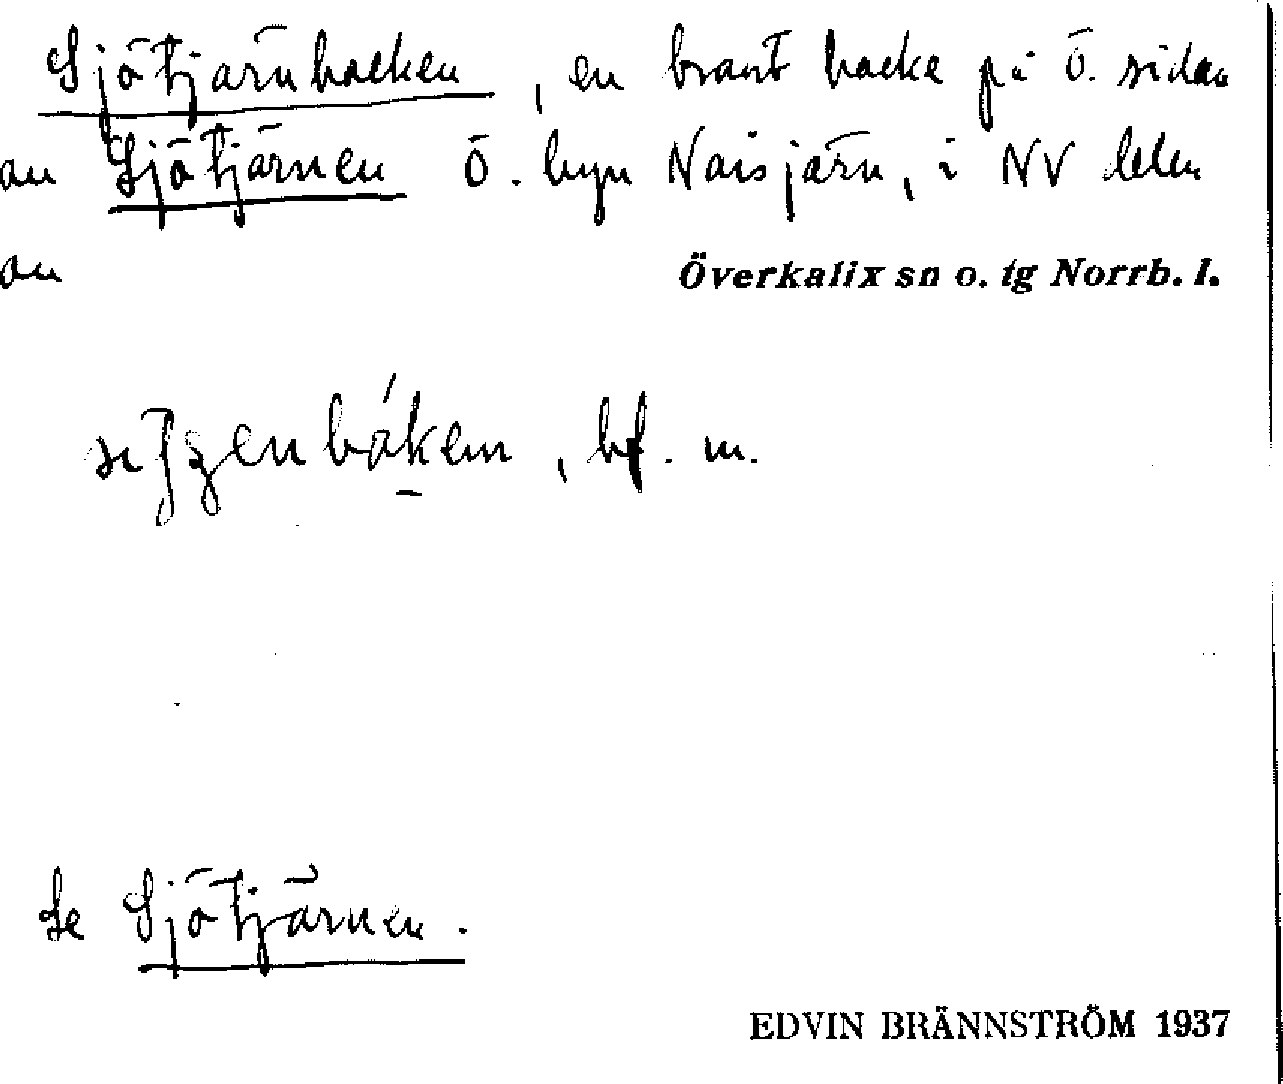 Sjötjärnbacken, en brant backe på Ö. sidan
av Sjötjärnen Ö. byn Naisjärn, i NV delen
av Överkalix sn o. tg Norrb. l.
bf. m.
Se Sjötjärnen.
EDVIN BRÄNNSTRÖM 1937